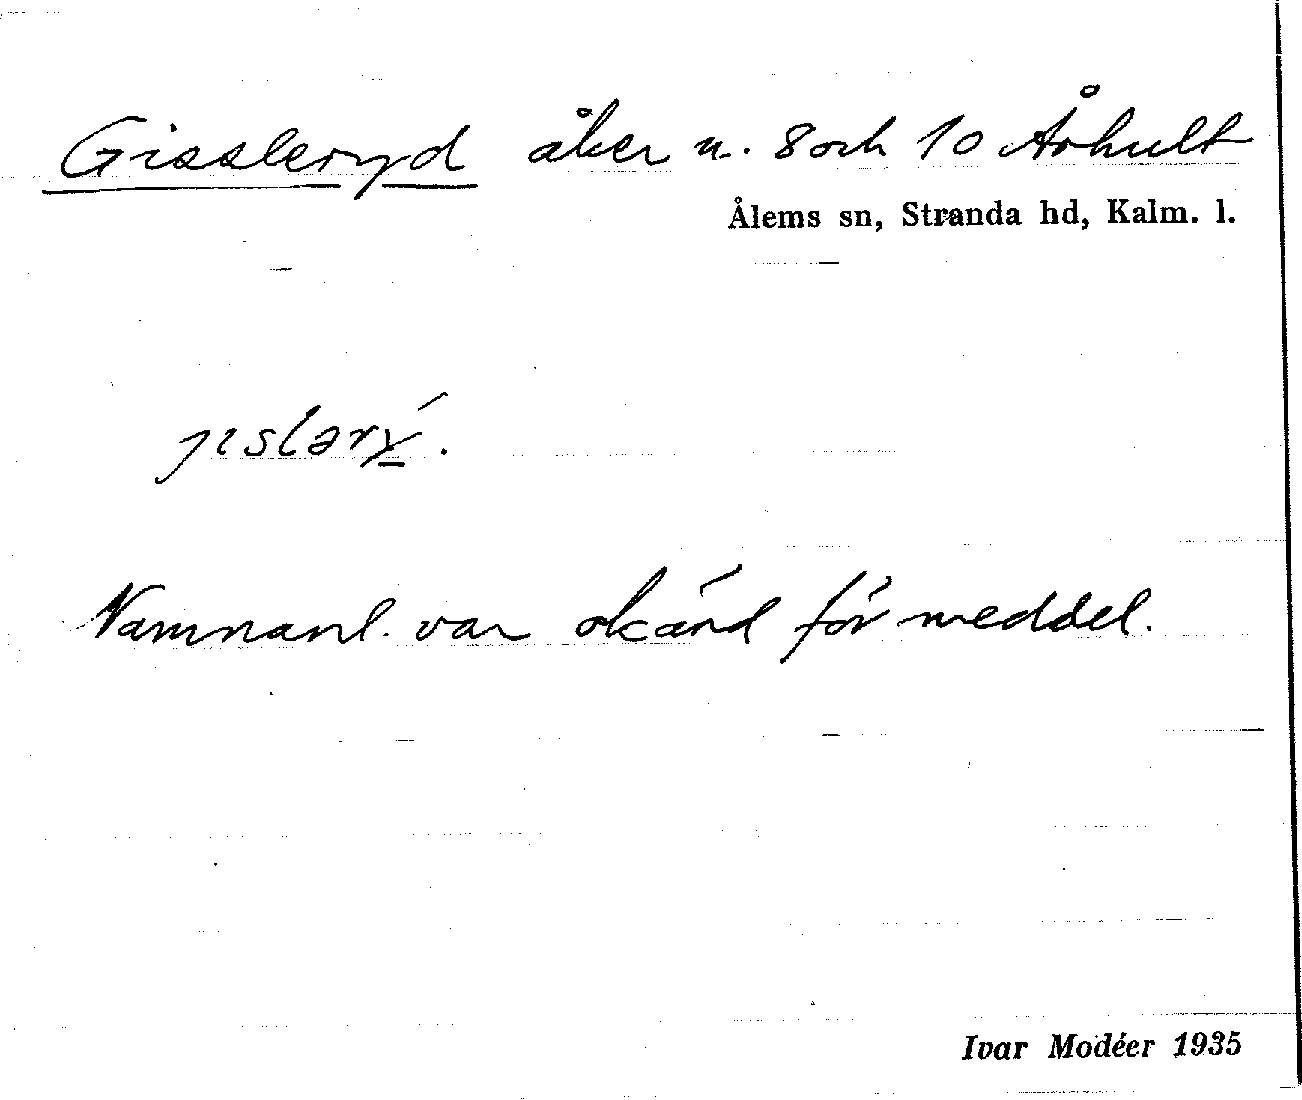 Gissleryd åker n. 8 och 10 Århult
Ålems sn, Stranda hd, Kalm. l.
jıslərý.
Namnanl. var okänd för meddel.
Ivar Modéer 1935